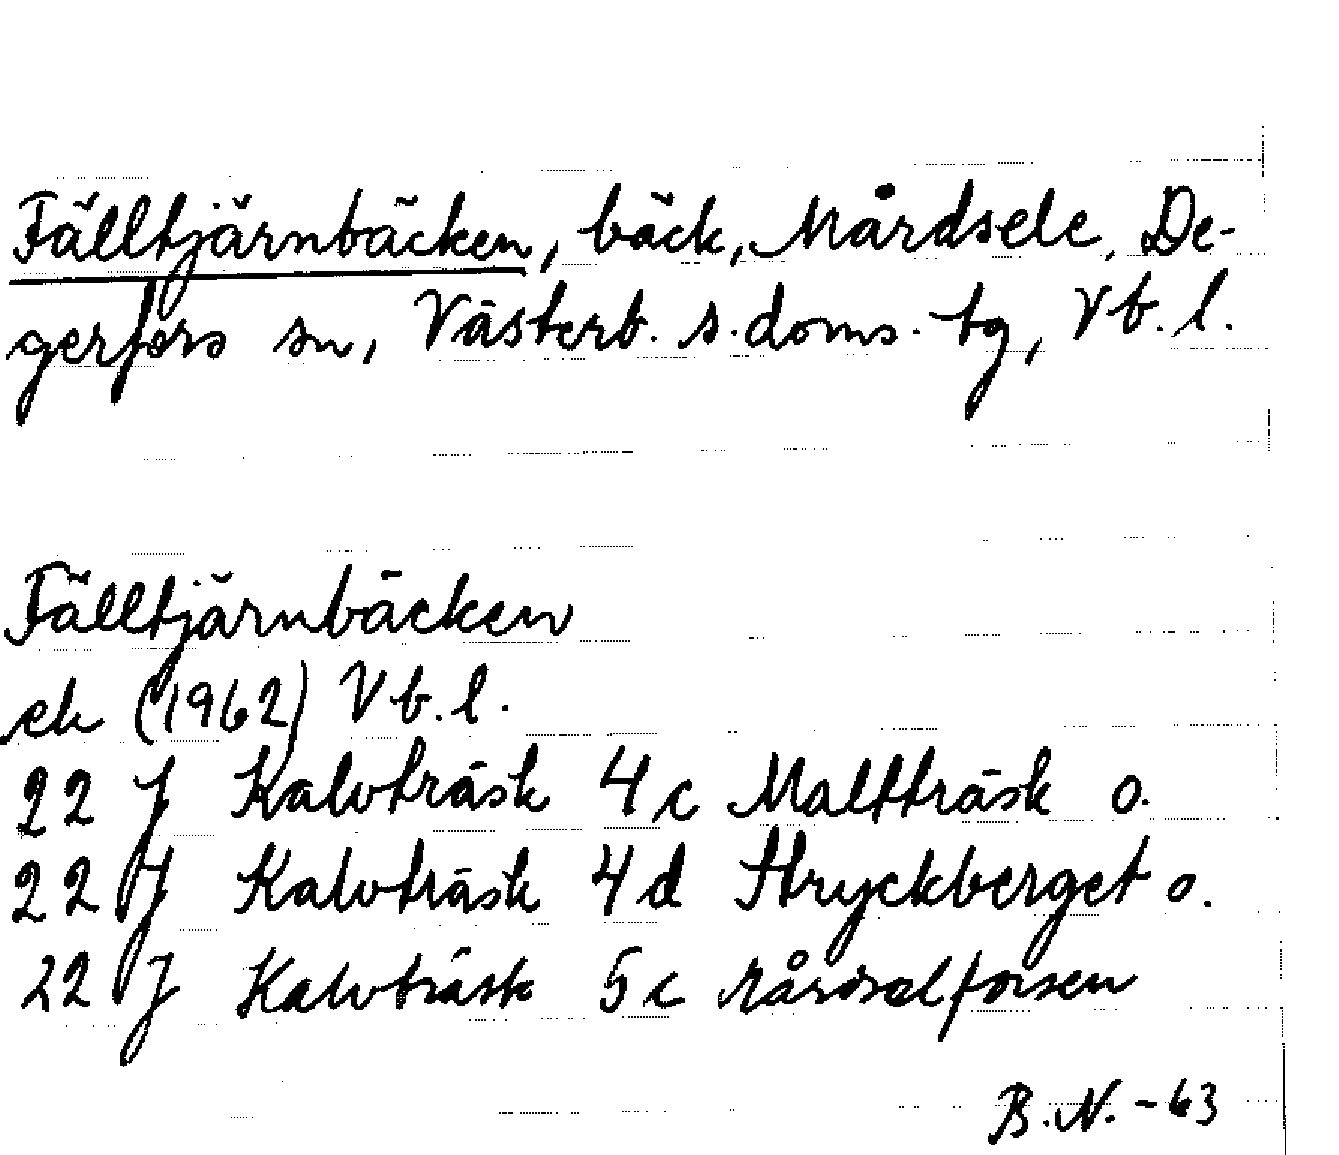 Fälltjärnbäcken, bäck, Mårdsele, De-
gerfors sn, Västerb. s. doms. tg, Vb. l.
Fälltjärnbäcken
ek (1962) Vb. l.
22 J Kalvträsk 4 c Maltträsk o.
22 J Kalvträsk 4 d Stryckberget o.
22 J Kalvträsk 5 c Mårdselforsen
B. N. - 63